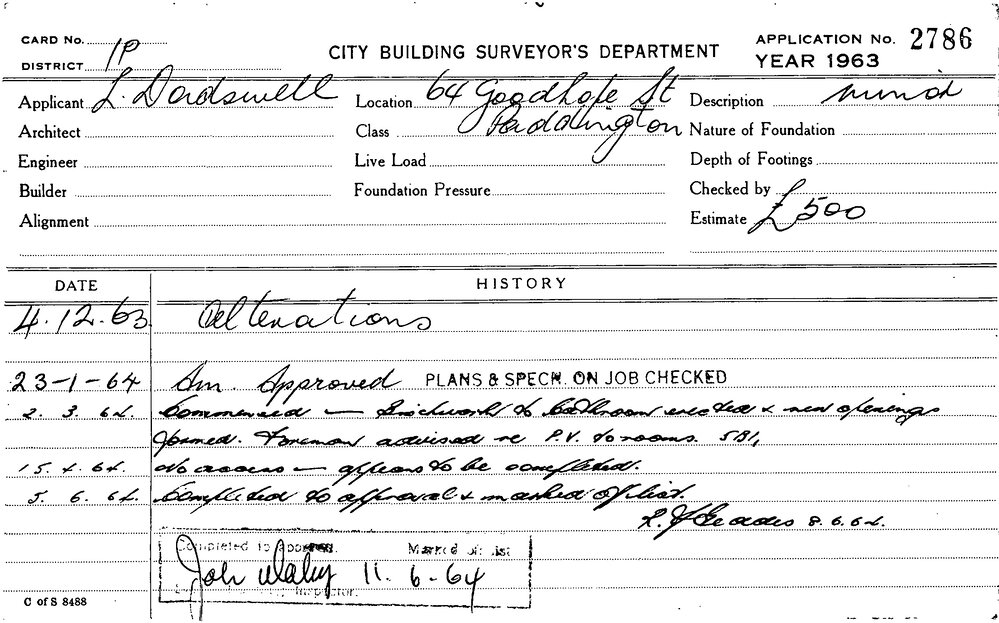 CARD No.
CITY BUILDING SURVEYOR'S DEPARTMENT
APPLICATION No. 2786
DISTRICT 1P
YEAR 1963
Applicant L. Dordswell
Location 64 Goodhope St
Description
Architect
Class Paddington
Nature of Foundation
Engineer
Live Load
Depth of Footings
Builder
Foundation Pressure
Checked by
Alignment
Estimate £500
DATE HISTORY
4.12.63 Alterations
23-1-64 Sm. Approved PLANS & SPECN. ON JOB CHECKED
2. 3. 64. Commenced — Brickwork to Bathroom erected & new openings
formed. Foreman advised re P.V. to rooms.
15. 4. 64. No access — appears to be completed.
5. 6. 64. Completed to approval & marked off list.
8.6.64.
Completed to Approval. Marked off List
11. 6-64
Inspector.
C of S 8488